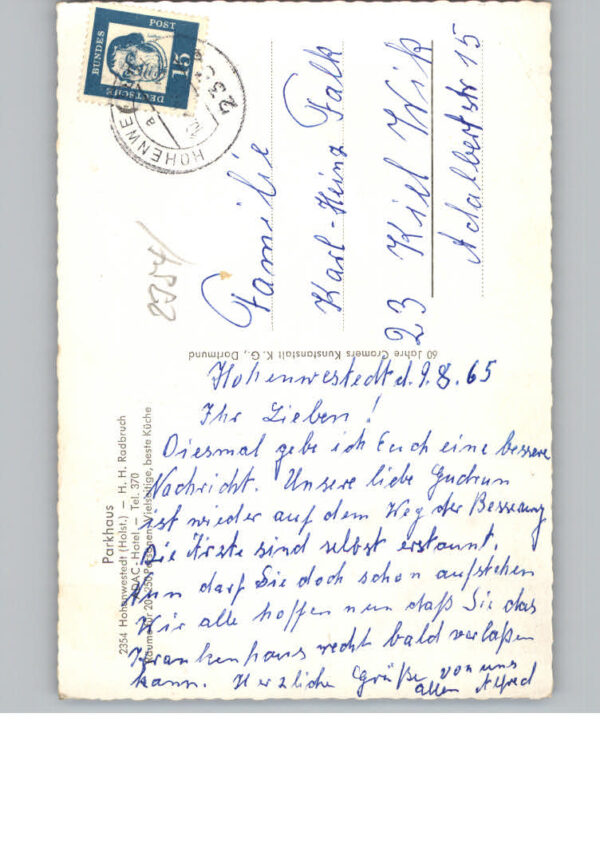 DEUTSCHE
BUNDES
POST
15
HOHENWE
2354
Familie
Karl-Heinz Falk
23 Kiel Wik
Adalbertstr 15
60 Jahre Cramers Kunstanstalt K. G., Dortmund
Parkhaus
2354 Hohenwestedt (Holst.) — H. H. Radbruch
ADAC-Hotel — Tel. 370
Räume für 20-250 Personen, Vielseitige, beste Küche
Hohenwestedt d. 9.8.65
Ihr Lieben!
Diesmal gebe ich Euch eine bessere
Nachricht. Unsere liebe Gudrun
ist wieder auf dem Weg der Besserung
Die Ärzte sind selbst erstaunt.
Nun darf Sie doch schon aufstehen
Wir alle hoffen nun daß Sie das
Krankenhaus recht bald verlaßen
kann. Herzliche Grüße von uns
allen Alfred